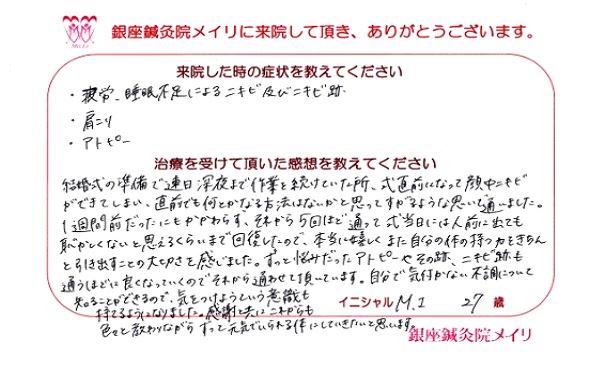 銀座鍼灸院メイリに来院して頂き、ありがとうございます。
来院した時の症状を教えてください
・疲労、睡眠不足によるニキビ及びニキビ跡
・肩こり
・アトピー
治療を受けて頂いた感想を教えてください
結婚式の準備で連日深夜まで作業を続けていた所、式直前になって顔中ニキビ
ができてしまい、直前でも何とかなる方法はないかと思ってすがるような思いで通いました。
1週間前だったにもかかわらず、それから5回ほど通って式当日には人前に出ても
恥かしくないと思えるくらいまで回復したので、本当に嬉しくまた自分の体の持つ力をきちん
と引き出すことの大切さを感じました。ずっと悩みだったアトピーやその跡、ニキビ跡も
通うほどに良くなっていくのでそれから通わせて頂いています。自分で気付かない不調について
知ることができるので、気をつけようという意識も
持てるようになりました。感謝と共にこれからも
色々と教わりながらずっと元気でいられる体にしていきたいと思います。
イニシャル M.I 27 歳
銀座鍼灸院メイリ